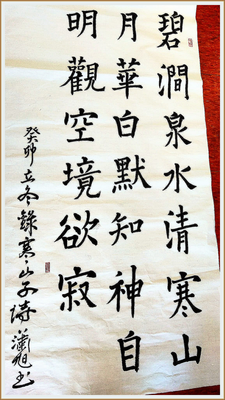 碧澗泉水清寒山
月華白默知神自
明觀空境欲寂
癸卯立冬錄寒山子詩蕭旭書